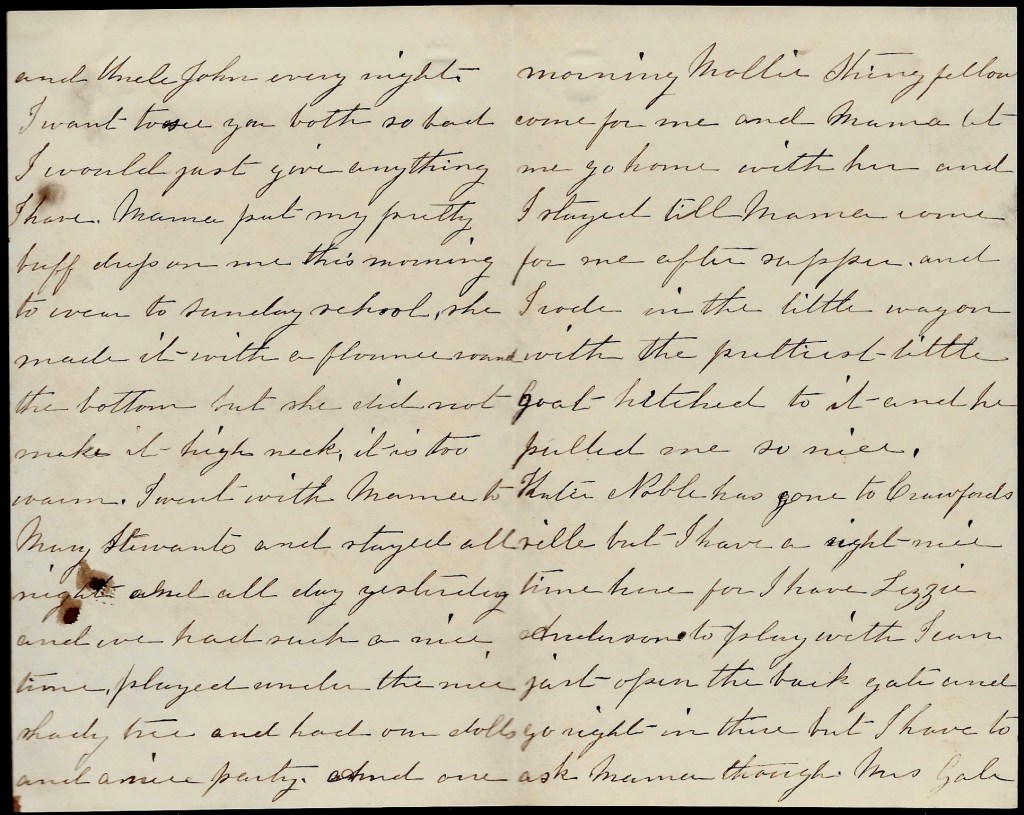 and Uncle John every night.
I want to see you both so bad
I would just give anything
I have. Mama put my pretty
buff dress on me this morning
to wear to sunday school, she
made it with a flounce round
the bottom but she did not
make it high neck, it is too
warm. I went with Mama to
Mary Stewarts and stayed all
night and all day yesterday
and we had such a nice
time, played under the nice
shady tree and had our dolls
and a nice party. And one
morning Mollie Stringfellow
come for me and Mama let
me go home with her and
I stayed till Mama come
for me after supper. and
I rode in the little wagon
with the prettiest little
Goat hitched to it and he
pulled me so nice.
Katie Noble has gone to Crawfords
ville but I have a right nice
time here for I have Lizzie
Anderson to play with I can
just open the back gate and
go right in there but I have to
ask Mama though. Mrs Gale